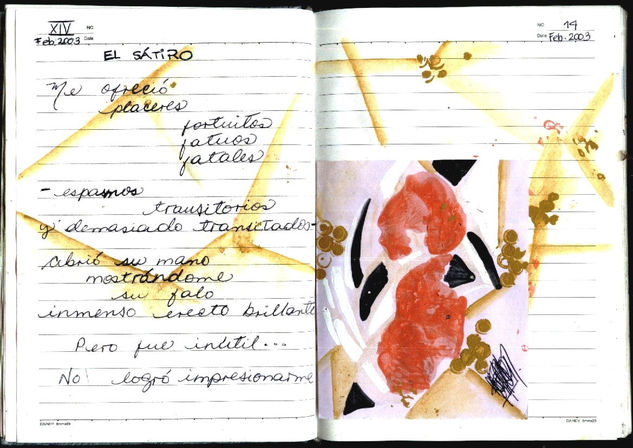 XIV
Feb. 2003
Date
EL SÁTIRO
Me ofreció
placeres
fortuitos
fatuos
fatales
- espasmos
transitorios
y demasiado transitados-
Abrió su mano
mostrándome
su falo
inmenso erecto brillante
Pero fue inútil...
No logró impresionarme
NO. 14
Date Feb. 2003